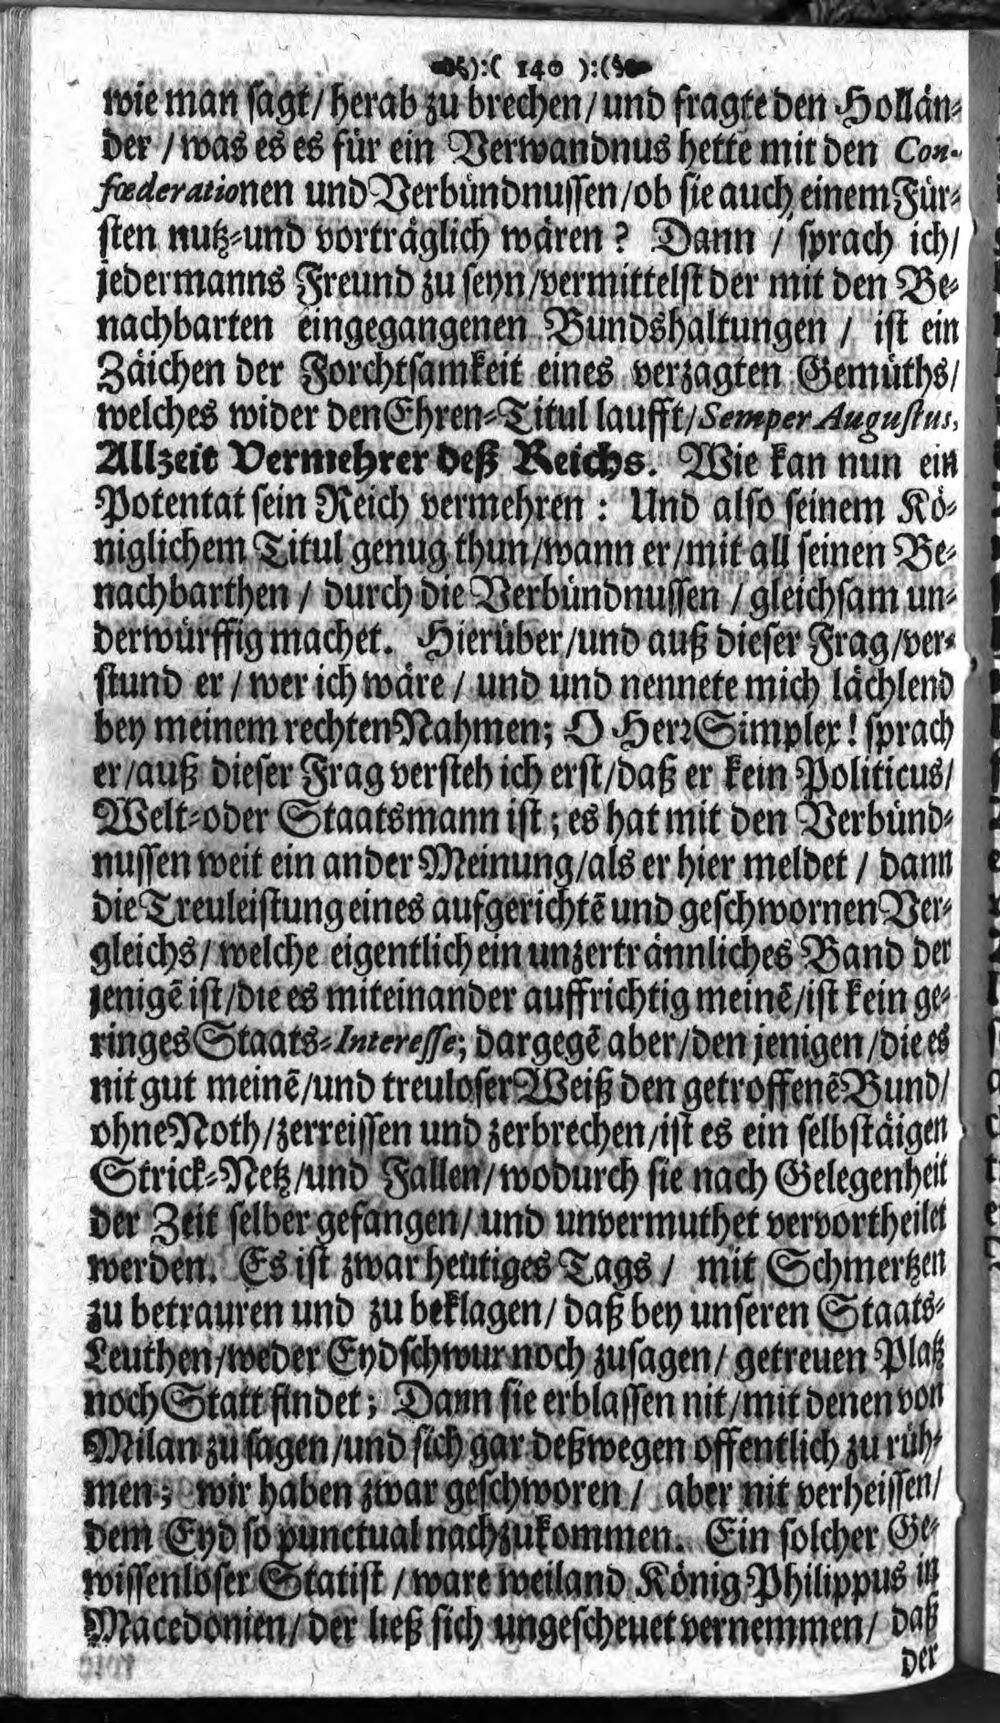 ):( 140 ):(
wie man sagt/ herab zu brechen/ und fragte den Hollän-
der / was es es für ein Verwandnus hette mit den Con-
fœderationen und Verbündnussen/ob sie auch einem Für-
sten nutz-und vorträglich wären? Dann / sprach ich/
jedermanns Freund zu seyn/vermittelst der mit den Be-
nachbarten eingegangenen Bundshaltungen / ist ein
Zäichen der Forchtsamkeit eines verzagten Gemüths/
welches wider den Ehren-Titul laufft/Semper Augustus,
Allzeit Vermehrer deß Reichs. Wie kan nun ein
Potentat sein Reich vermehren : Und also seinem Kö-
niglichem Titul genug thun/wann er/mit all seinen Be-
nachbarthen / durch die Verbündnussen / gleichsam un-
derwürffig machet. Hierüber/und auß dieser Frag/ver-
stund er / wer ich wäre / und und nennete mich lächlend
bey meinem rechten Nahmen; O Herr Simplex! sprach
er/auß dieser Frag versteh ich erst/daß er kein Politicus/
Welt-oder Staatsmann ist; es hat mit den Verbünd-
nussen weit ein ander Meinung/als er hier meldet / dann
die Treuleistung eines aufgerichtē und geschwornen Ver-
gleichs/ welche eigentlich ein unzertränn­liches Band der
jenigē ist/die es miteinander auffrichtig meinē/ist kein ge-
ringes Staats-Interesse; dargegē aber/den jenigen/die es
nit gut meinē/und treuloser Weiß den getroffenē Bund/
ohne Noth/zerreissen und zerbrechen/ist es ein selbstäigen
Strick-Netz/und Fallen/wodurch sie nach Gelegenheit
der Zeit selber gefangen/ und unvermuthet vervortheilet
werden. Es ist zwar heutiges Tags / mit Schmertzen
zu betrauren und zu beklagen/ daß bey unseren Staats-
Leuthen/weder Eydschwur noch zusagen/ getreuen Platz
noch Statt findet; Dann sie erblassen nit/mit denen von
Milan zu sagen/und sich gar deßwegen offentlich zu rüh-
men; wir haben zwar geschworen / aber nit verheissen/
dem Eyd so punctual nachzukommen. Ein solcher Ge-
wissenloser Statist / ware weiland König Philippus in
Macedonien/ der ließ sich ungescheuet vernemmen/ daß
der